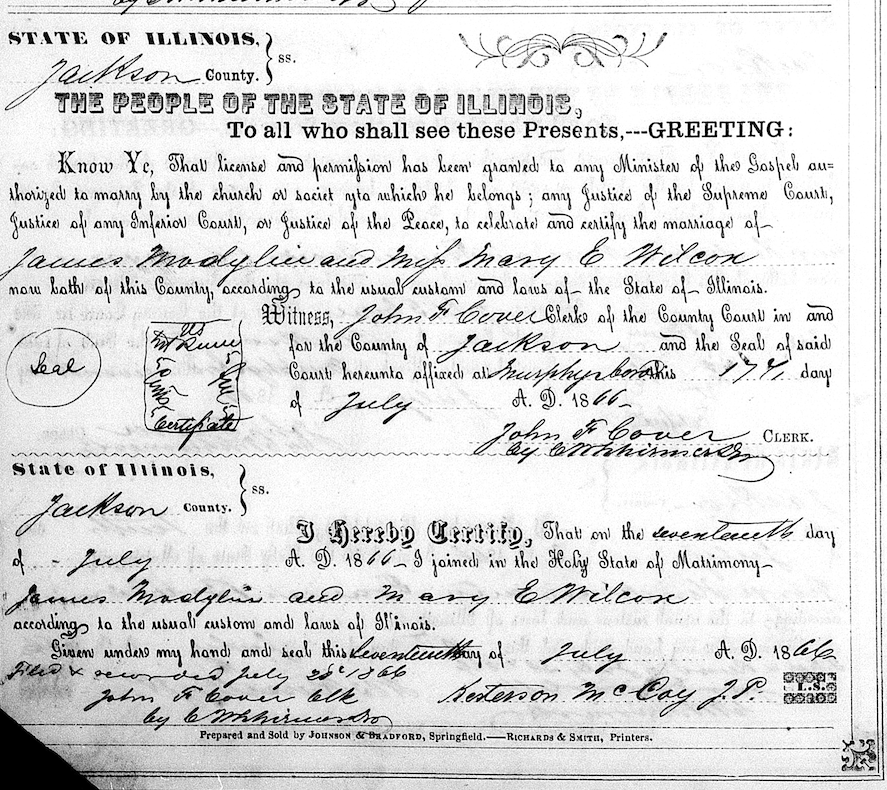 STATE OF ILLINOIS,
Jackson County. } ss.
THE PEOPLE OF THE STATE OF ILLINOIS,
To all who shall see these Presents,---GREETING:
Know Ye, That license and permission has been granted to any Minister of the Gospel au=
thorized to marry by the church or societ yto which he belongs; any Justice of the Supreme Court,
Justice of any Inferior Court, or Justice of the Peace, to celebrate and certify the marriage of
James Modglin and Miss Mary E Wilcox
now both of this County, according to the usual custom and laws of the State of Illinois.
Witness, John F Cover Clerk of the County Court in and
for the County of Jackson and the Seal of said
Court hereunto affixed at Murphysboro this 17th day
of July A. D. 1866
Seal
Certificate
John F Cover CLERK.
by
State of Illinois,
Jackson County. } ss.
I Hereby Certify, That on the seventeenth day
of July A. D. 1866 I joined in the Holy State of Matrimony
James Modglin and Mary E Wilcox
according to the usual custom and laws of Il'inois.
Given under my hand and seal this seventeenth day of July A. D. 1866
Filed & recorded July 1866
Kesterson McCoy J.P. L.S.
John F Cover Clk
by
Prepared and Sold by JOHNSON & BRADFORD, Springfield.—RICHARDS & SMITH, Printers.